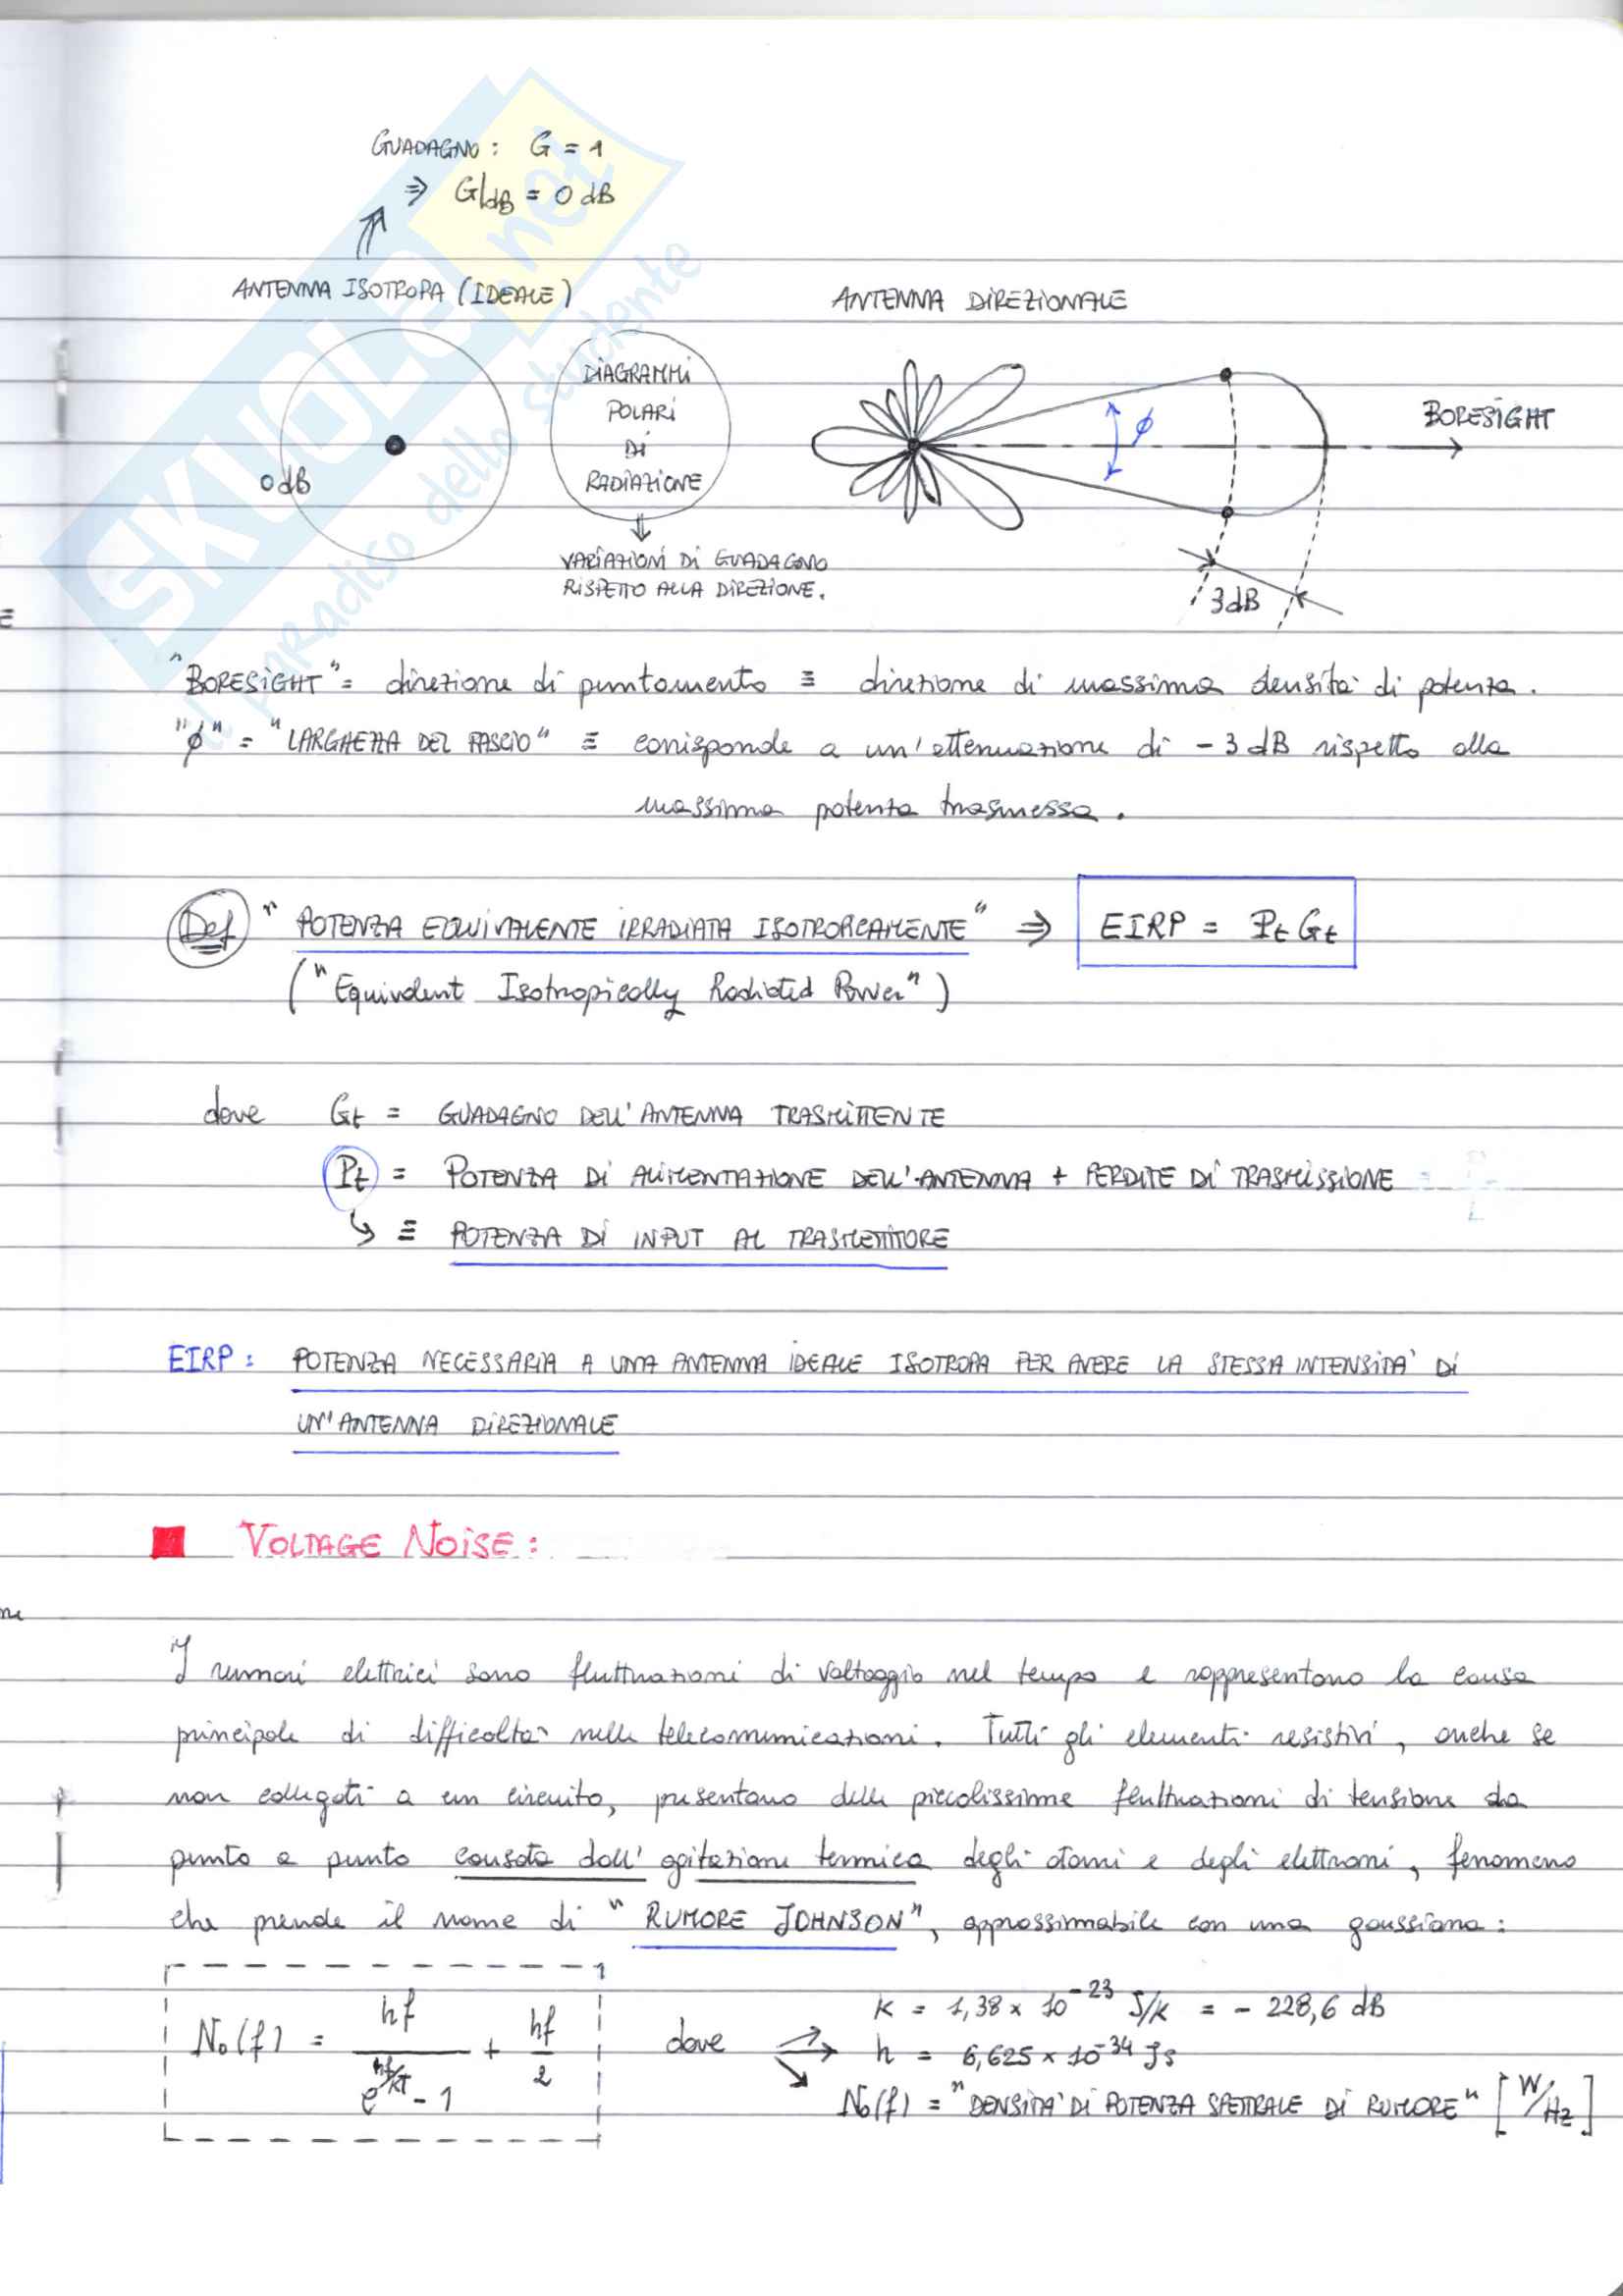 GUADAGNO: G = 1
⇒ G|dB = 0 dB
ANTENNA ISOTROPA (IDEALE)
ANTENNA DIREZIONALE
0 dB
DIAGRAMMI
POLARI
DI
RADIAZIONE
VARIAZIONI DI GUADAGNO
RISPETTO ALLA DIREZIONE.
ϕ
BORESIGHT
3 dB
"BORESIGHT" = direzione di puntamento ≡ direzione di massima densità di potenza.
"ϕ" = "LARGHEZZA DEL FASCIO" ≡ corrisponde a un'attenuazione di -3 dB rispetto alla
massima potenza trasmessa.
Def "POTENZA EQUIVALENTE IRRADIATA ISOTROPICAMENTE" ⇒ EIRP = Pt Gt
("Equivalent Isotropically Radiated Power")
dove Gt = GUADAGNO DELL'ANTENNA TRASMITTENTE
Pt = POTENZA DI ALIMENTAZIONE DELL'ANTENNA + PERDITE DI TRASMISSIONE
↳ ≡ POTENZA DI INPUT AL TRASMETTITORE
EIRP: POTENZA NECESSARIA A UNA ANTENNA IDEALE ISOTROPA PER AVERE LA STESSA INTENSITA' DI
UN'ANTENNA DIREZIONALE
VOLTAGE NOISE:
I rumori elettrici sono fluttuazioni di voltaggio nel tempo e rappresentano la causa
principale di difficoltà nelle telecomunicazioni. Tutti gli elementi resistivi, anche se
non collegati a un circuito, presentano delle piccolissime fluttuazioni di tensione da
punto a punto causate dall'agitazione termica degli atomi e degli elettroni, fenomeno
che prende il nome di "RUMORE JOHNSON", approssimabile con una gaussiana:
N₀(f) = hf / (e^(hf/kT) - 1) + hf/2 dove
k = 1,38 × 10⁻²³ J/K = -228,6 dB
h = 6,625 × 10⁻³⁴ Js
N₀(f) = "DENSITA' DI POTENZA SPETTRALE DI RUMORE" [W/Hz]
SKUOLA.net
il paradiso dello studente